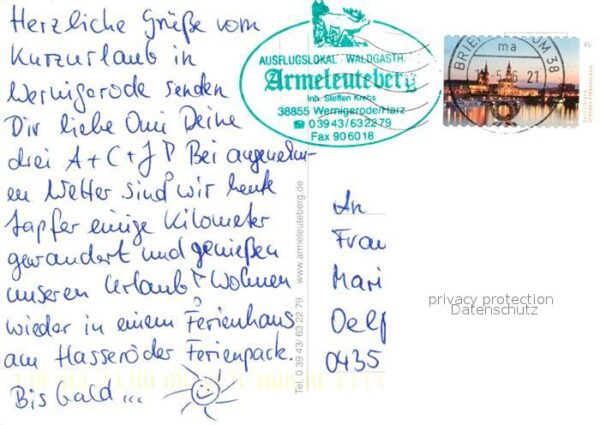 Herzliche Grüße vom
Kurzurlaub in
Wernigerode senden
Dir liebe Omi Deine
drei A+C+J! Bei angenehm-
en Wetter sind wir heute
tapfer einige Kilometer
gewandert und genießen
unseren Urlaub! Wohnen
wieder in einem Ferienhaus
am Hasseröder Ferienpark.
Bis bald ...
AUSFLUGSLOKAL · WALDGASTH.
Armeleuteberg
Inh. Steffen Krebs
38855 Wernigerode/Harz
☎ 0 39 43/63 22 79
Fax 90 60 18
BRIEFZENTRUM 38
ma
21
45
Tel. 0 39 43/ 63 22 79 www.armeleuteberg.de
An
Frau
Mari
Oelf
0435
privacy protection
Datenschutz